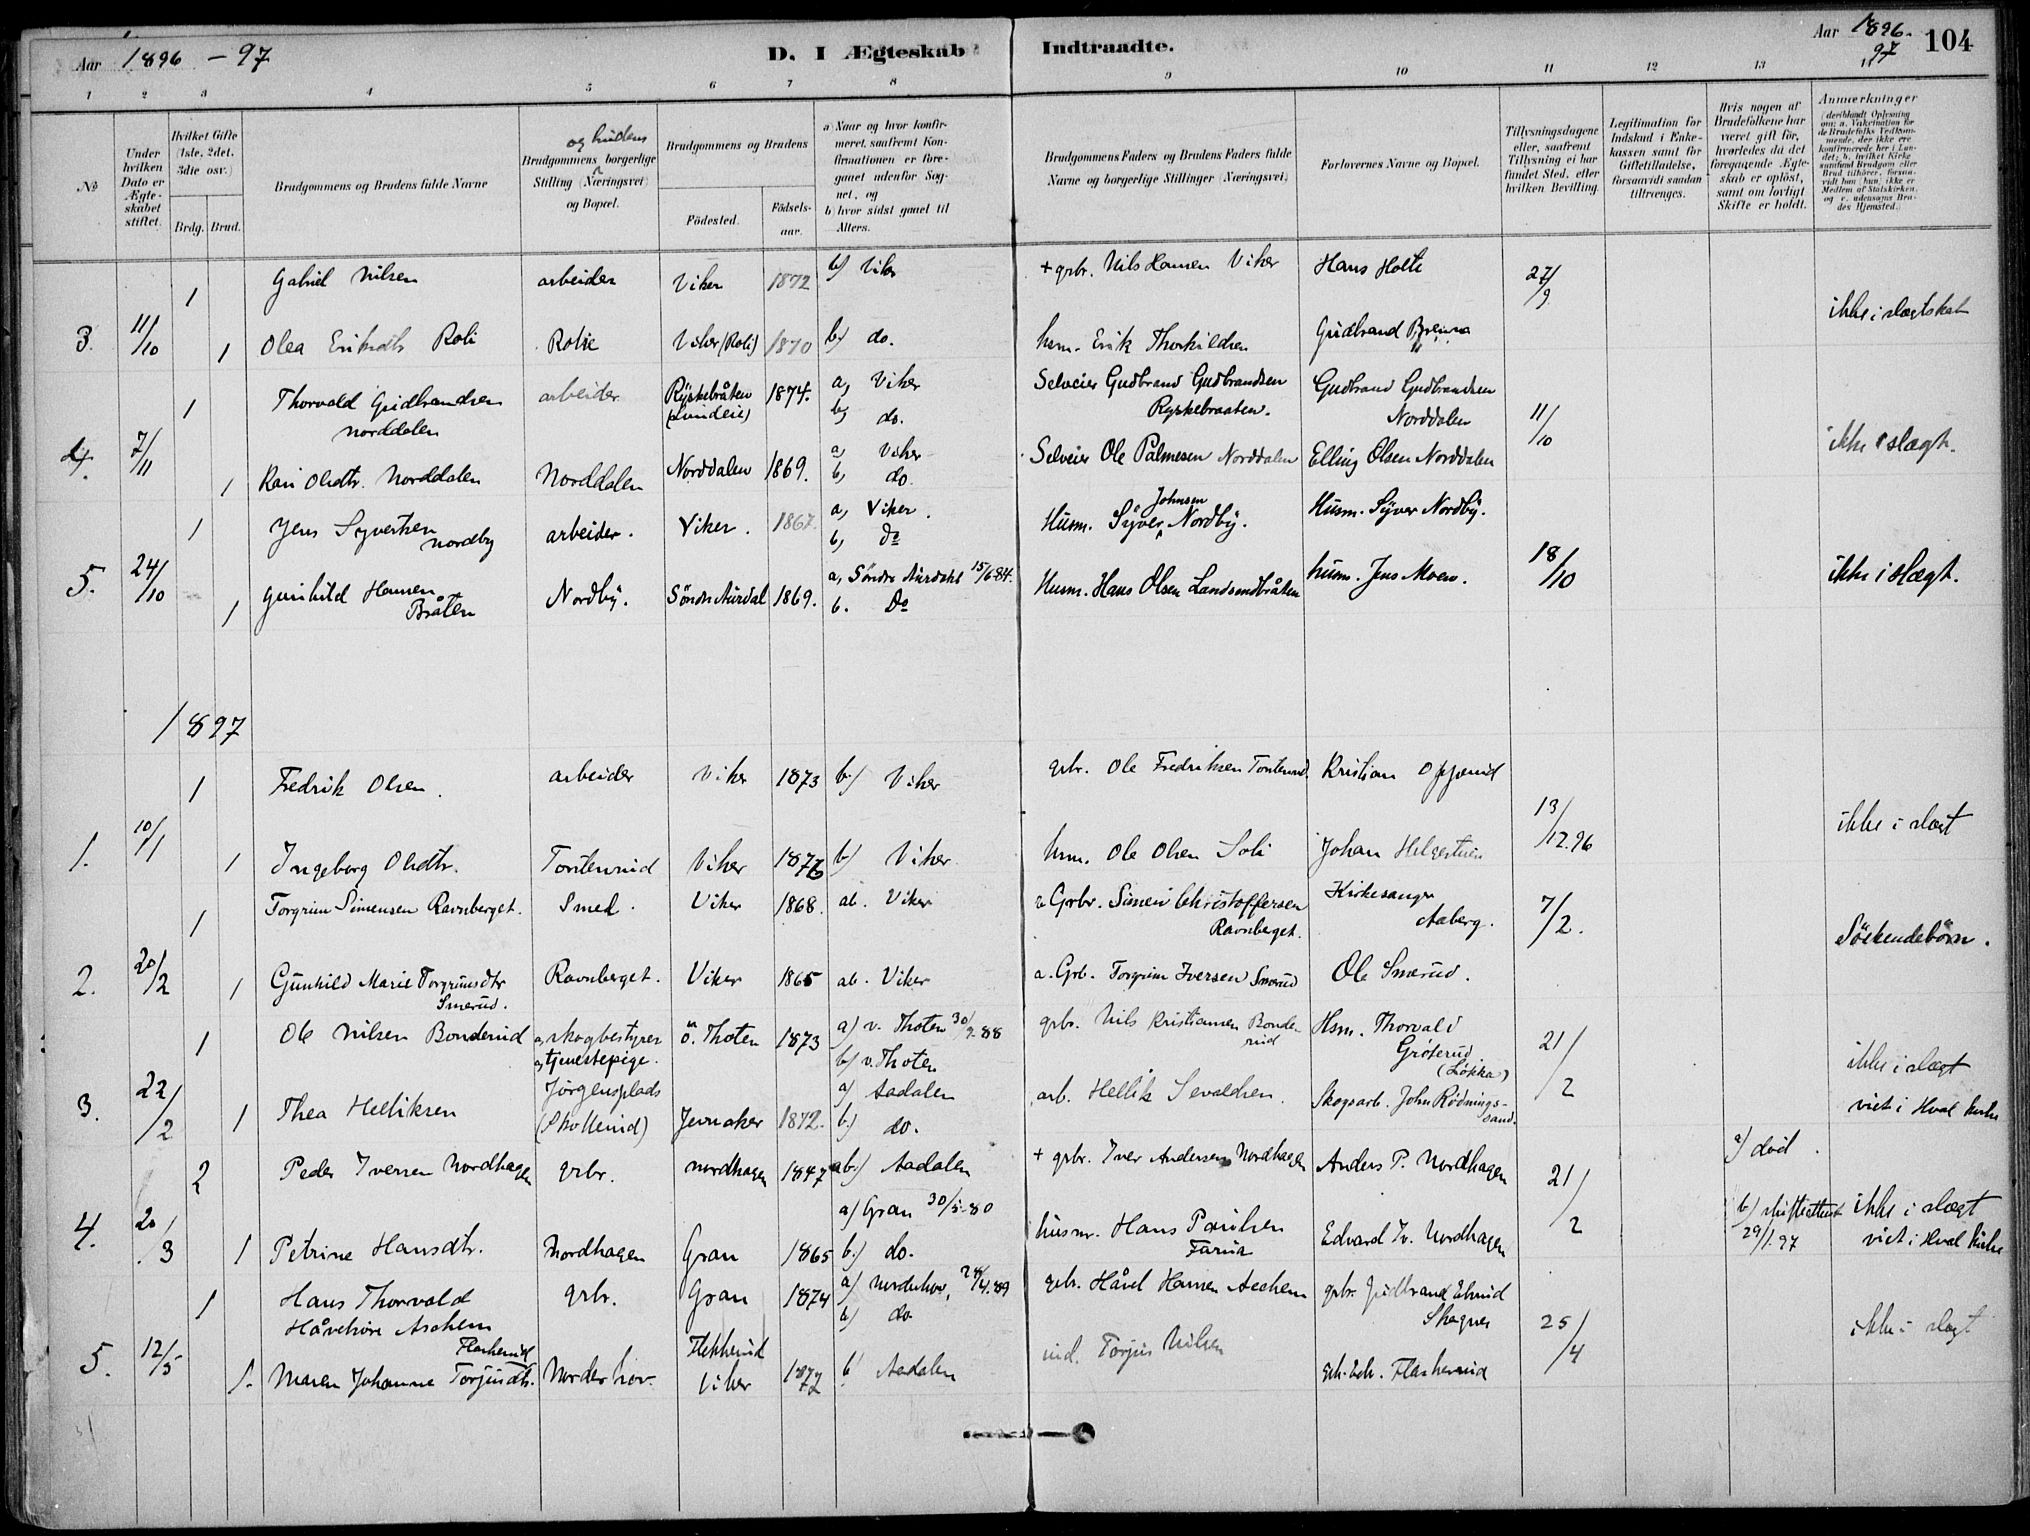 Aar 1896 – 97
D. I Ægteskab Indtraadte.
Aar 1896-97
104
1 2 3 4 5 6 7 8 9 10 11 12 13
№
Under hvilken Dato er Ægteskabet stiftet.
Hvilket Gifte (1ste, 2det, 3die osv.)
Brdg. Brud.
Brudgommens og Brudens fulde Navne
og brudens
Brudgommens borgerlige Stilling (Næringsvei) og Bopæl.
Brudgommens og Brudens
Fødested.
Fødselsaar.
a) Naar og hvor konfirmeret, saafremt Konfirmationen er foregaaet udenfor Sognet, og
b) hvor sidst gaaet til Alters.
Brudgommens Faders og Brudens Faders fulde Navne og borgerlige Stillinger (Næringsvei)
Forlovernes Navne og Bopæl.
Tillysningsdagene eller, saafremt Tillysning ei har fundet Sted, efter hvilken Bevilling.
Legitimation for Indskud i Enkekassen samt for Giftetilladelse, forsaavidt saadan tiltrænges.
Hvis nogen af Brudefolkene har været gift før, hvorledes da det foregaaende Ægteskab er opløst, samt om lovligt Skifte er holdt.
Anmærkninger
1 Gabriel Nilsen arbeider Viker 1872 b) Viker + grbr. Nils Hansen Viker Hans Holte 27/9
3. 11/10 1 Olea Eriksdtr Roli Rolie Viker (Roli) 1870 b) do. hsm. Erik Thorkildsen Gudbrand ikke i slægtskab
1 Thorvald Gudbrandsen arbeider Ryskebråten 1874. a, Viker Selveier Gudbrand Gudbrandsen Gudbrand Gudbrandsen
Norddalen b, do. Ryskebraaten. Norddalen 11/10
4. 7/11 1 Kari Olsdtr. Norddalen Norddalen Norddalen 1869. a, Viker b, do. Selveier Ole Palmesen Norddalen Elling Olsen Norddalen ikke i slægt.
1 Jens Syvertsen Nordby arbeider. Viker. 1867. a, Viker. b, do Husm. Syver Johnsen Nordby. Husm. Syver Nordby.
5. 24/10 1 Gunhild Hansen Bråten Nordby. Søndre Aurdal 1869. a, Søndre Aurdahl 15/6-84. b. Do Husm. Hans Olsen Landsendbråten husm. Jens Moen. 18/10 ikke i slægt.
1897
1 Fredrik Olsen. arbeider Viker 1873 b) Viker grbr. Ole Fredriksen Tostenrud Kristian Oppenrud
1. 10/1 1 Ingeborg Olsdtr. Tostenrud Viker 1876 b) Viker hsm. Ole Olsen Soli Johan Helgestuen 13/12.96 ikke i slægt
1 Torgrim Simensen Ravnberget. Smed. Viker 1868. ab. Viker Grbr. Simen Christoffersen Ravnberget. Kirkesanger Aaberg. 7/2.
2. 20/2 1 Gunhild Marie Torgrimsdtr Smerud. Ravnberget. Viker 1865 ab. Viker a. Grb. Torgrim Iversen Smerud Ole Smerud. Söskendebörn.
1 Ole Nilsen Bonderud a, skogbestyrer ö. Thoten 1873 a) v. Thoten 30/9-88 b) v. Thoten grbr. Nils Kristiansen Bonderud Hsm. Thorvald Grøterud (Løkka) 21/2
tjenestepige.
3. 22/2 1 Thea Helliksen Jørgensplads (Skollerud) Jevnaker 1872. a) Aadalen b.) do. arb. Hellik Sevaldsen. Skogsarb. John Rødningssand. ikke i slægt viet i Hval kirke
2 Peder Iversen Nordhagen grbr. Nordhagen 1847 ab.) Aadalen + grbr. Iver Andersen Nordhagen Anders P. Nordhagen 21/2 a) död.
4. 20/3 1 Petrine Hansdtr. Nordhagen Gran 1865 a) Gran 30/5-80 b.) do. husm. Hans Paulsen Edvard Iv. Nordhagen b) skifteattest 29/1.97 ikke i slægt viet i Hval kirke
1 Hans Thorvald grbr. Gran 1874 a) Norderhov, 28/4.89 b) do. grbr. Håvel Hansen Aschem grbr. Gudbrand
Håvelsøn Aschem Skagnes 25/4
5. 12/5 1. Maren Johanne Torjusdtr. Flaskerud Norderhov. Flekkerud Viker 1872 b) Aadalen ind. Torjus Nilsen Flaskerud ikke i slægt